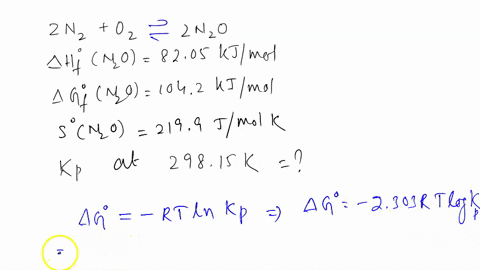 2N₂ + O₂ ⇌ 2N₂O
ΔHf°(N₂O) = 82.05 KJ/mol
ΔGf°(N₂O) = 104.2 KJ/mol
S°(N₂O) = 219.9 J/mol K
Kp at 298.15 K = ?
ΔG° = -RT ln Kp ⇒ ΔG° = -2.303RT log Kp
=